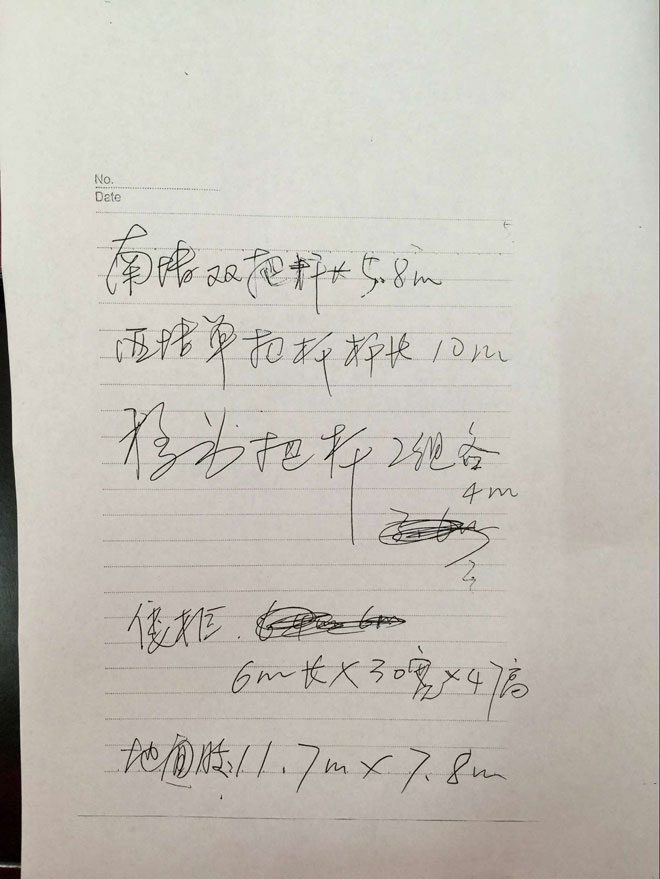 No.
Date
南墙双把杆长5.8m
西墙单把杆杆长10m
移动把杆2组各
4m
矮柜.
6m长×30宽×47高
地面胶:11.7m×7.8m